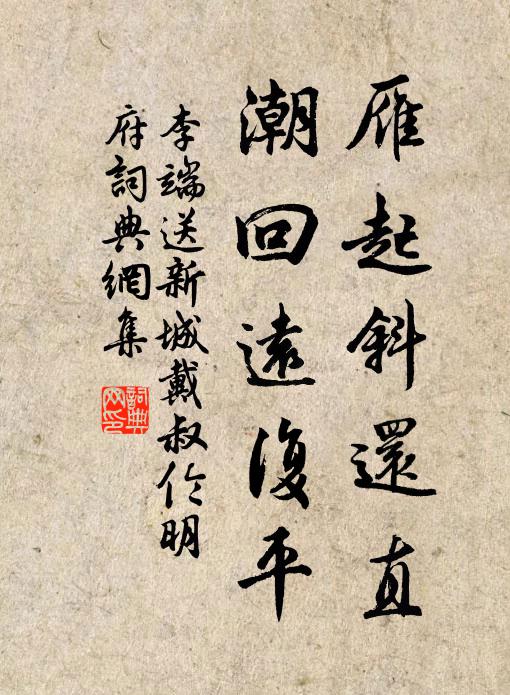 雁起斜還直
潮回遠復平
李端送新城戴叔伦明
府詞典網集
詞典
网印